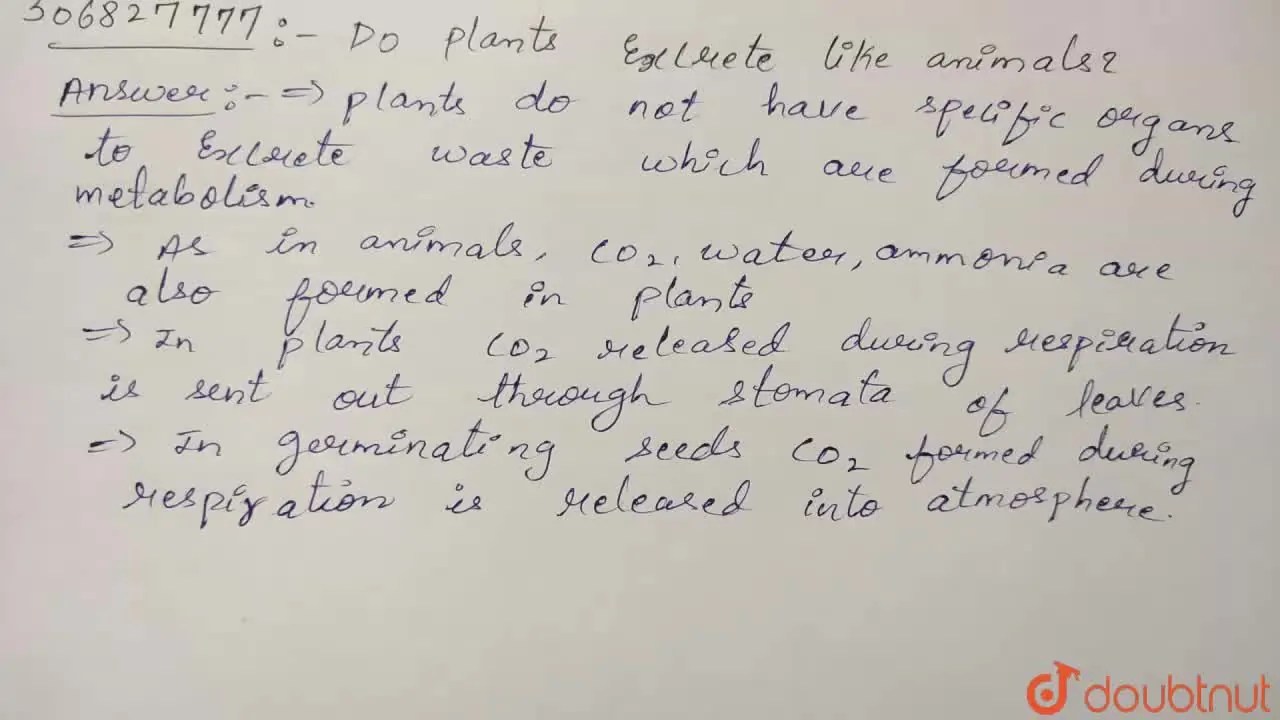 306827777:- Do plants Excrete like animals?
Answer:- => plants do not have specific organs
to Excrete waste which are formed during
metabolism.
=> As in animals, CO2, water, ammonia are
also formed in plants
=> In plants CO2 released during respiration
is sent out through stomata of leaves.
=> In germinating seeds CO2 formed during
respiration is released into atmosphere.
doubtnut